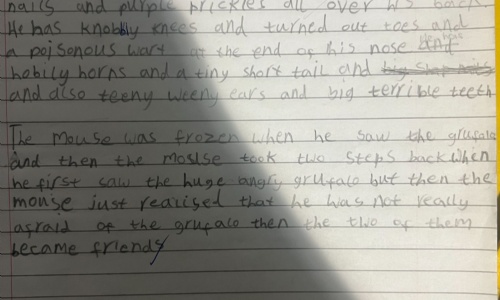 nails and purple prickles all over his back
He has knobbly knees and turned out toes and
a poisonous wart at the end of his nose and
hobily horns and a tiny short tail and
and also teeny weeny ears and big terrible teeth
The mouse was frozen when he saw the grufalo
and then the moslse took two steps back when
he first saw the huge angry grufalo but then the
mouse just realised that he was not really
afraid of the grufalo then the two of them
became friends